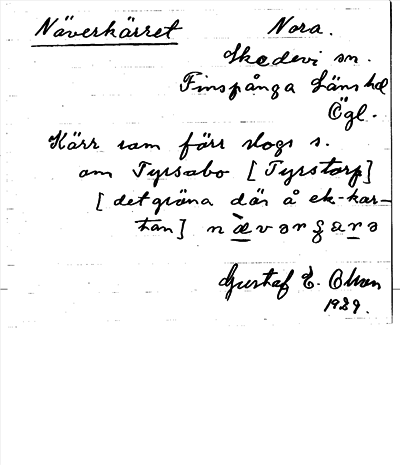 Näverkärret Nora.
Skedevi sn.
Finspånga läns hd
Ögl.
Kärr som förr slogs s.
om Tyrsabo [Tyrstorp]
[det gröna där å ek-kar-
tan]
Gustaf E. Olson
1929.